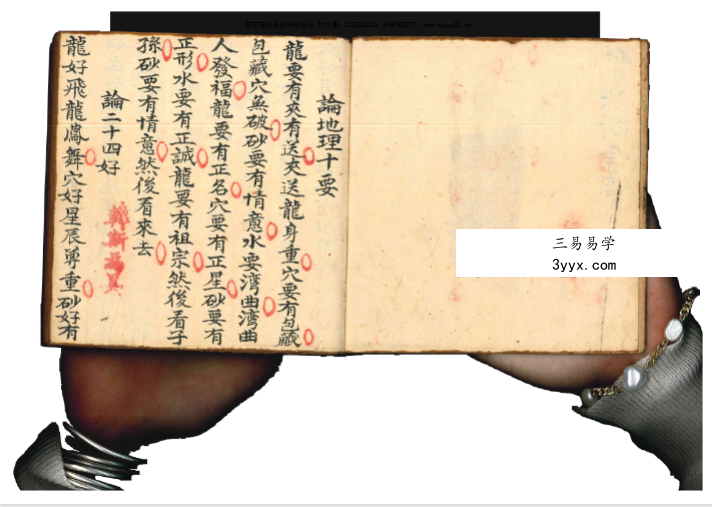 論地理十要
龍要有夾有送夾送龍身重穴要有包藏
包藏穴無破砂要有情意水要湾曲湾曲
人發福龍要有正名穴要有正星砂要有
正形水要有正誠龍要有祖宗然後看子
孫砂要有情意然後看來去
論二十四好
龍好飛龍鳳舞穴好星辰簿重砂好有
三易易学
3yyx.com